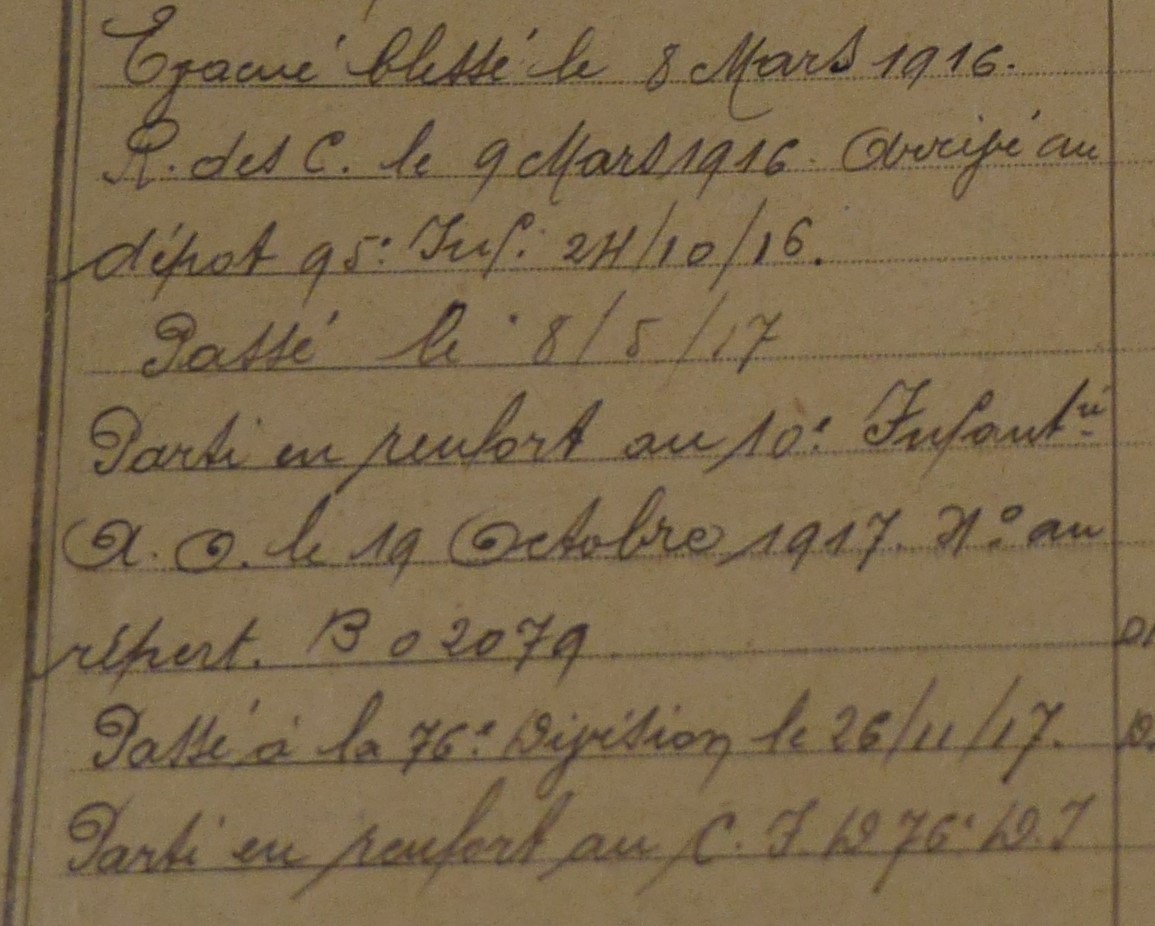 Evacué blessé le 8 Mars 1916.
R. des C. le 9 Mars 1916. Dirigé au
dépot 95e Inf. 24/10/16.
Passé le 8/5/17
Parti en renfort au 10e Infantie
A. O. le 19 Octobre 1917. No au
répert. B 02079
Passé à la 76e Division le 26/11/17.
Parti en renfort au C. I. D 76e D. I